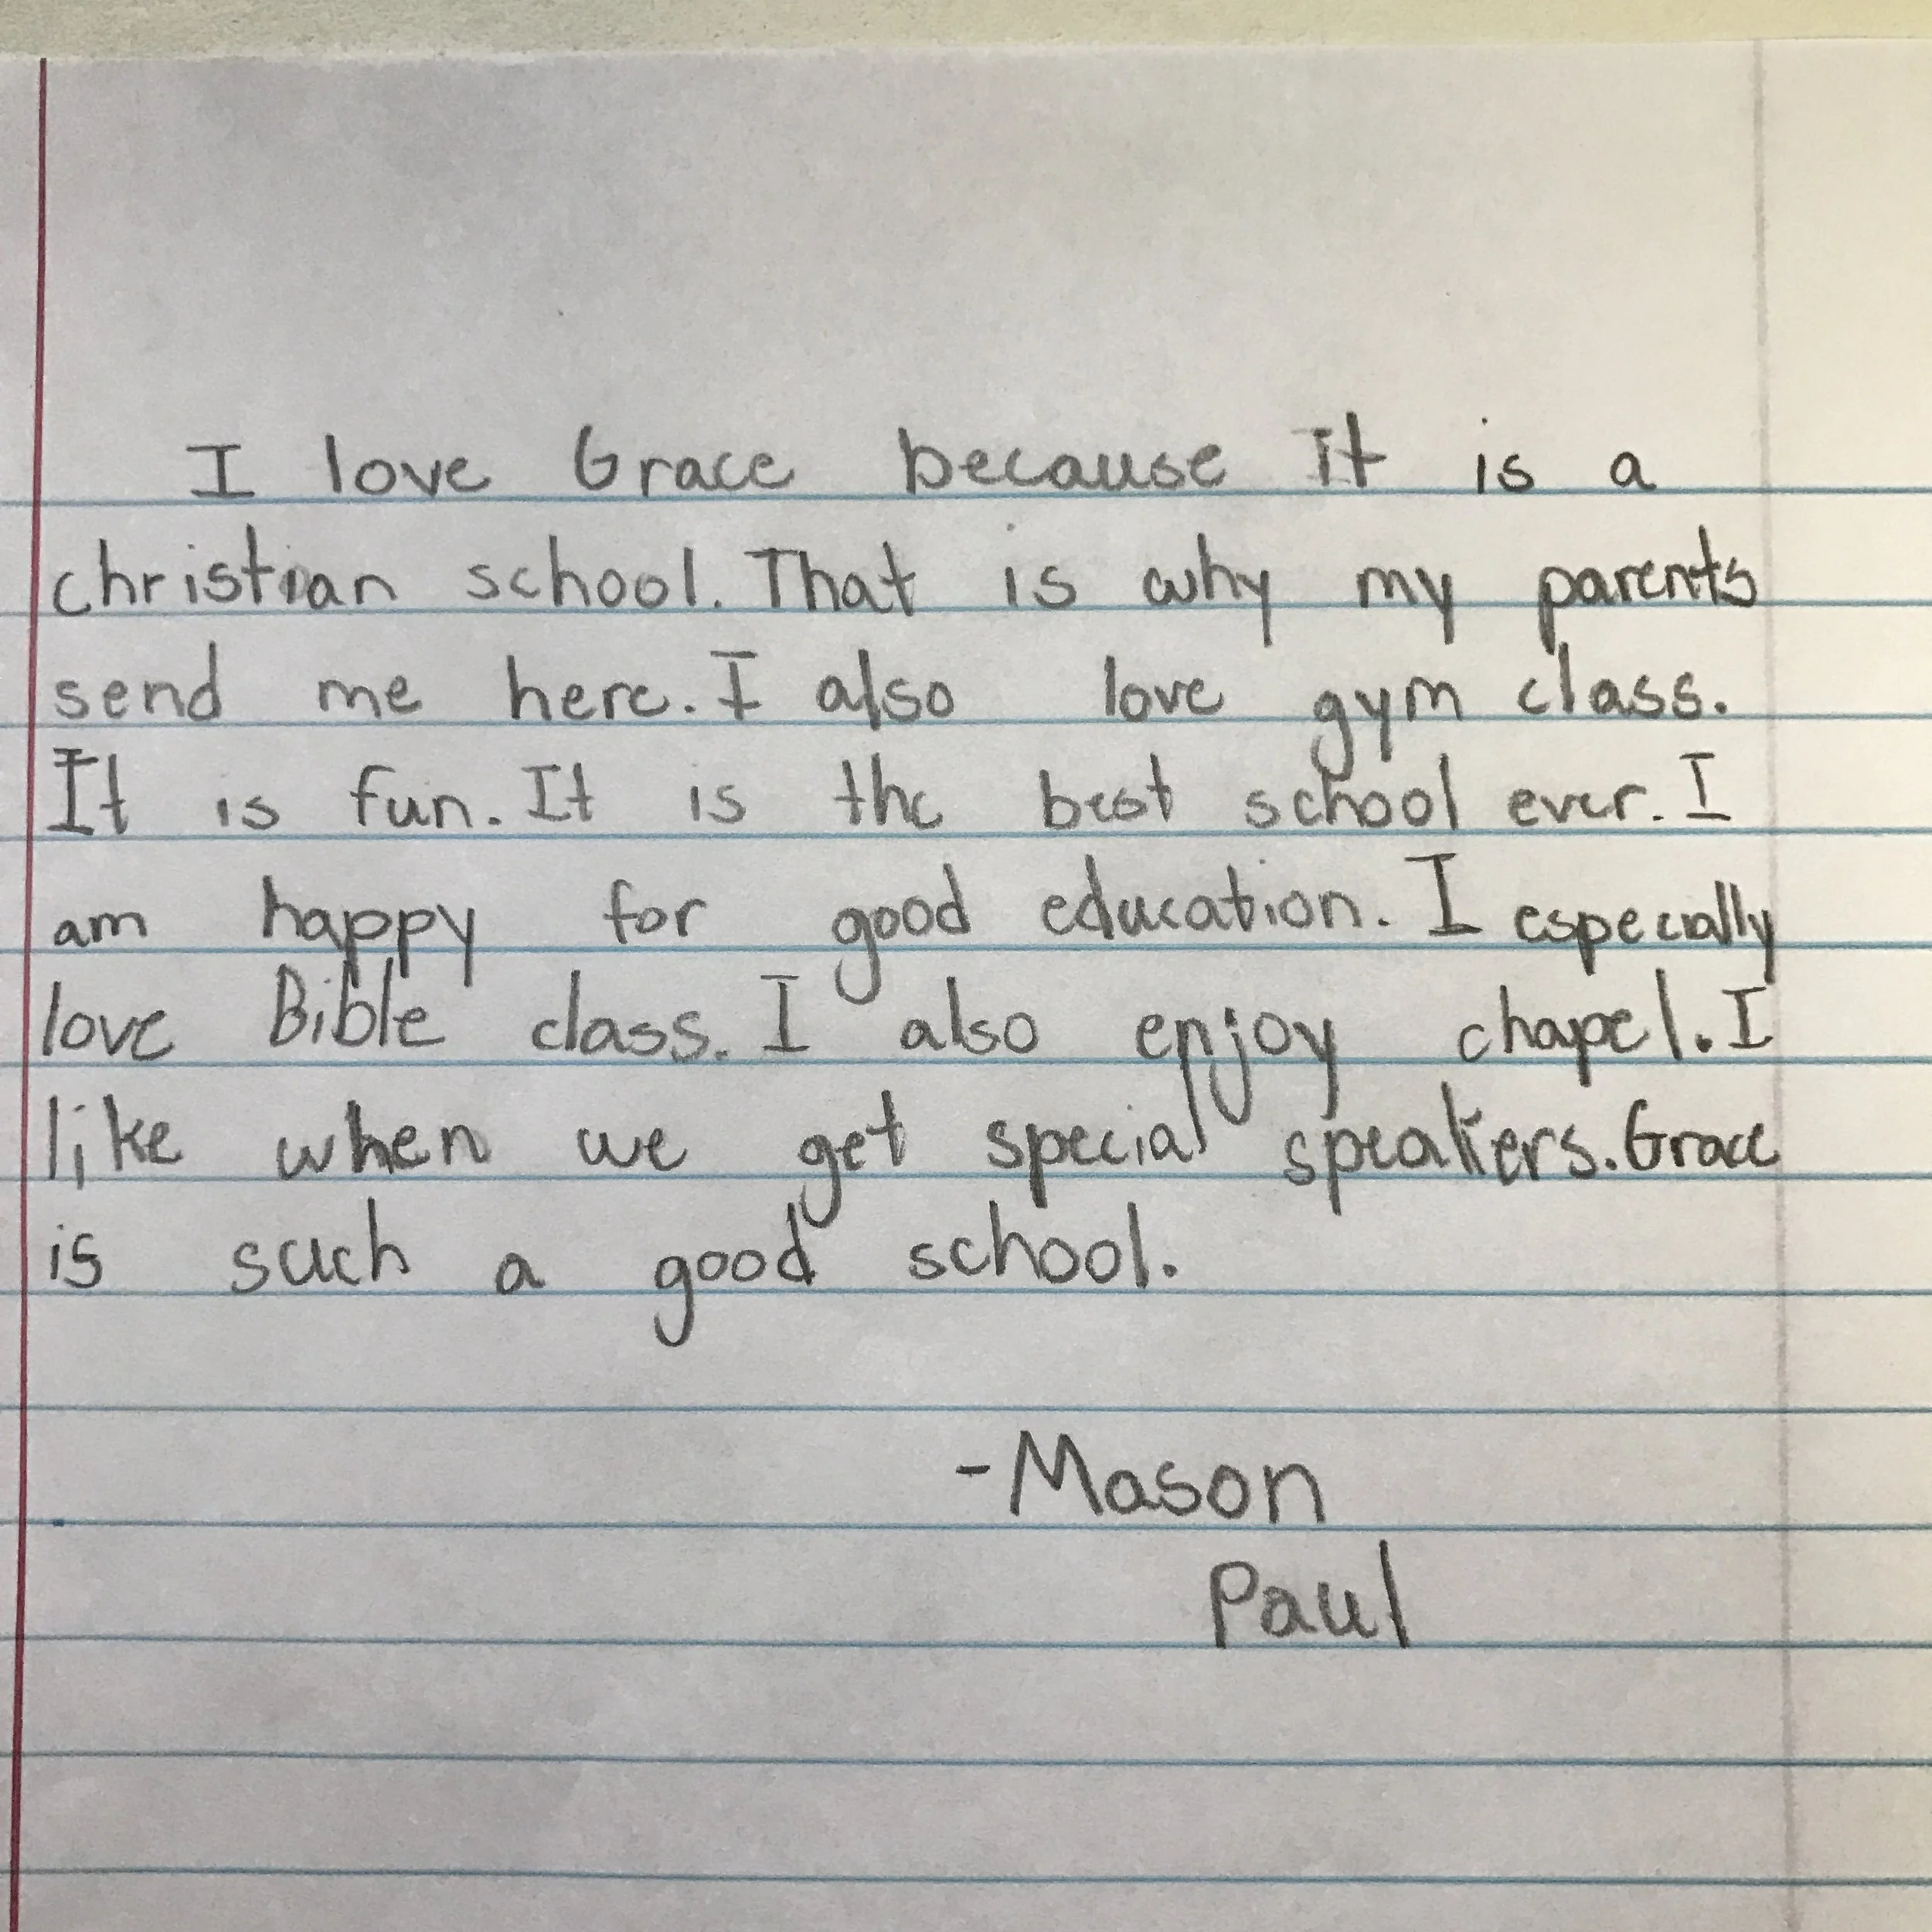 I love Grace because it is a
christian school. That is why my parents
send me here. I also love gym class.
It is fun. It is the best school ever. I
am happy for good education. I especially
love Bible class. I also enjoy chapel. I
like when we get special speakers. Grace
is such a good school.
-Mason
Paul